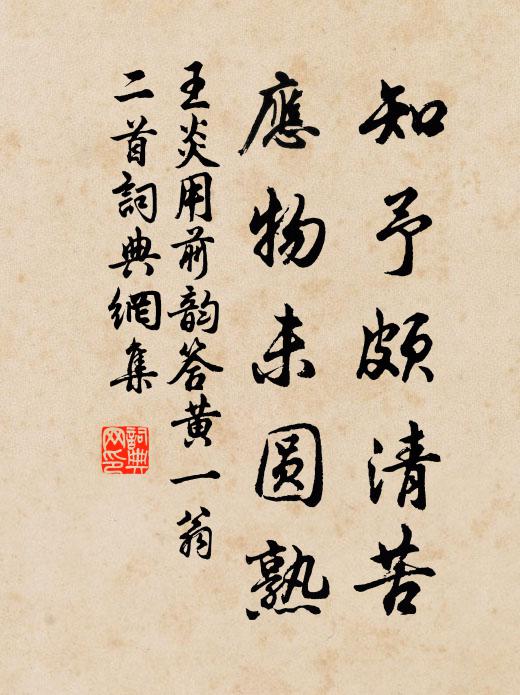 知予頗清苦
應物未圆熟
王炎用前韵答黄一翁
二首詞典網集
詞典網印